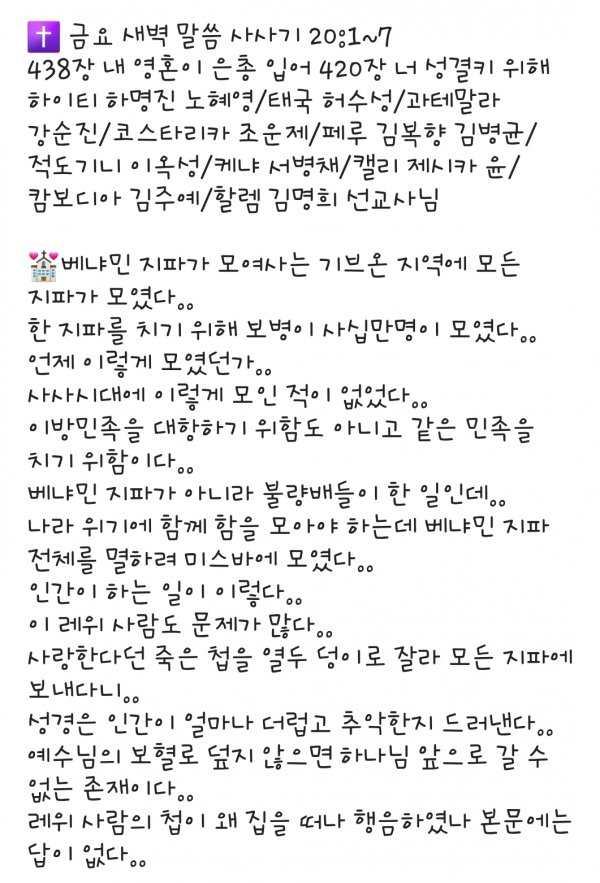 ✝️ 금요 새벽 말씀 사사기 20:1~7
438장 내 영혼이 은총 입어 420장 너 성결키 위해
하이티 하명진 노혜영/태국 허수성/과테말라
강순진/코스타리카 조운제/페루 김복향 김병균/
적도기니 이옥성/케냐 서병채/캘리 제시카 윤/
캄보디아 김주예/할렘 김명희 선교사님

💒베냐민 지파가 모여사는 기브온 지역에 모든
지파가 모였다..
한 지파를 치기 위해 보병이 사십만명이 모였다..
언제 이렇게 모였던가..
사사시대에 이렇게 모인 적이 없었다..
이방민족을 대항하기 위함도 아니고 같은 민족을
치기 위함이다..
베냐민 지파가 아니라 불량배들이 한 일인데..
나라 위기에 함께 함을 모아야 하는데 베냐민 지파
전체를 멸하려 미스바에 모였다..
인간이 하는 일이 이렇다..
이 레위 사람도 문제가 많다..
사랑한다던 죽은 첩을 열두 덩이로 잘라 모든 지파에
보내다니..
성경은 인간이 얼마나 더럽고 추악한지 드러낸다..
예수님의 보혈로 덮지 않으면 하나님 앞으로 갈 수
없는 존재이다..
레위 사람의 첩이 왜 집을 떠나 행음하였나 본문에는
답이 없다..